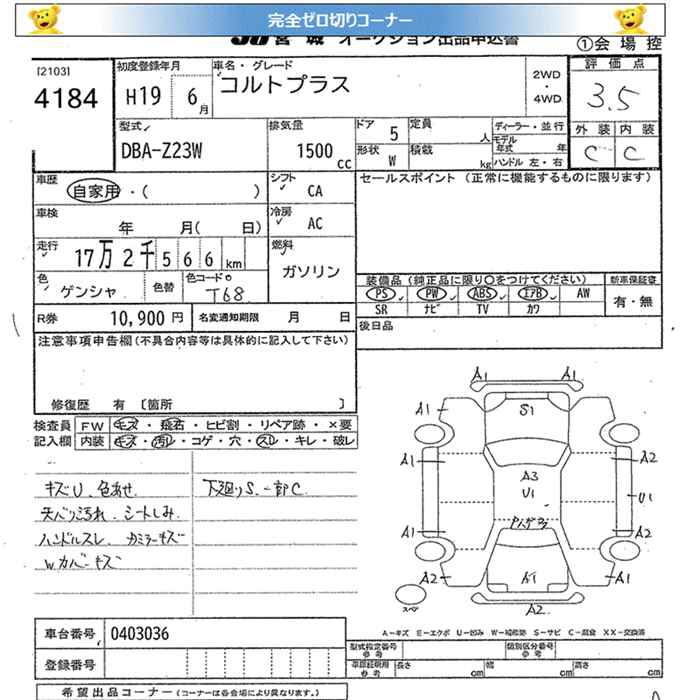 完全ゼロ切りコーナー
JU宮城 オークション出品申込書
①会場控
[2103]
4184
初度登録年月
H19 6月
車名・グレード
コルトプラス
2WD
・
4WD
評価点
3.5
外装 内装
C C
型式
DBA-Z23W
排気量
1500cc
ドア 5
定員 人
形状 W
積載 kg
ディーラー・並行
モデル年式 年
ハンドル 左・右
車歴
自家用・( )
シフト
CA
セールスポイント (正常に機能するものに限ります)
車検
年 月( 日)
冷房
AC
走行
17万2千566km
燃料
ガソリン
色
ゲンシャ
色替
色コードNo
T68
装備品(純正品に限り○をつけてください)
新車保証書
PS PW ABS エアB AW
SR ナビ TV カワ
有・無
R券 10,900円
名変通知期限 月 日
後日品
注意事項申告欄(不具合内容等は具体的に記入して下さい)
修復歴 有 [箇所 ]
検査員記入欄
FW キズ・飛石・ヒビ割・リペア跡・×要
内装 キズ・汚れ・コゲ・穴・スレ・キレ・破レ
キズU、色あせ
天バリ汚れ、シートしみ
ハンドルスレ カミラーキズ
Wカバーキズ
下廻りS、一部C
A1 A1
A1
S1
A1 A2
A3
U1 U1
A1 A2
A2 A1 A1
A2
スペア
A-キズ E-エクボ U-凹み W-補修跡 S-サビ C-腐食 XX-交換済
車台番号 0403036
登録番号
型式指定番号
参考
類別区分番号
参考
車庫証明用
参考
長さ cm 幅 cm 高さ cm
希望出品コーナー (コーナーは各会場により異なります。)